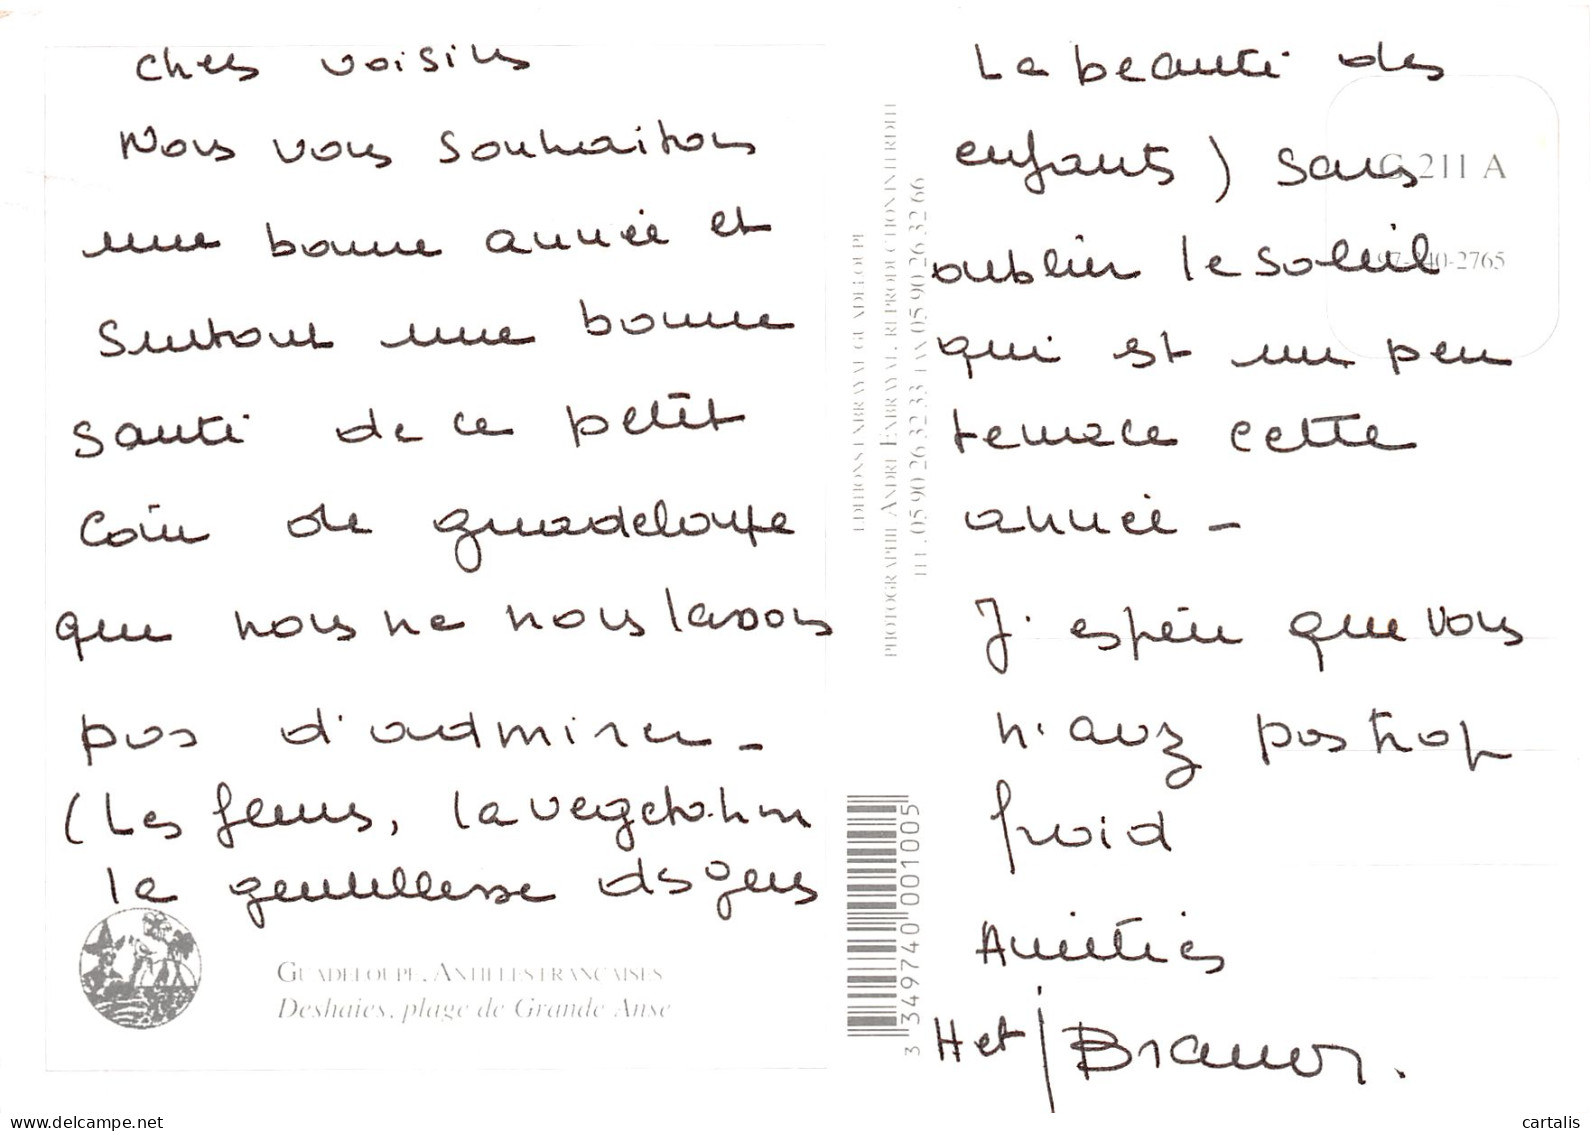 Chers voisins
Nous vous souhaitons
une bonne année et
surtout une bonne
santé de ce petit
coin de guadeloupe
que nous ne nous lassons
pas d'admirer -
(Les fleurs, la vegetation
la gentillesse des gens
La beauté des
enfants) sans
oublier le soleil
qui est un peu
tenace cette
année -
J'espère que vous
n'avez pas trop
froid
Amitiés
H et J
GUADELOUPE, ANTILLES FRANÇAISES
Deshaies, plage de Grande Anse
EDITIONS EXBRAYAT GUADELOUPE
PHOTOGRAPHIE ANDRÉ EXBRAYAT, REPRODUCTION INTERDITE
TEL. 05 90 26 32 33 FAX 05 90 26 32 66
G 211 A
97-240-2765
3 349740 001005
https://www.cartalis.net
cartalis